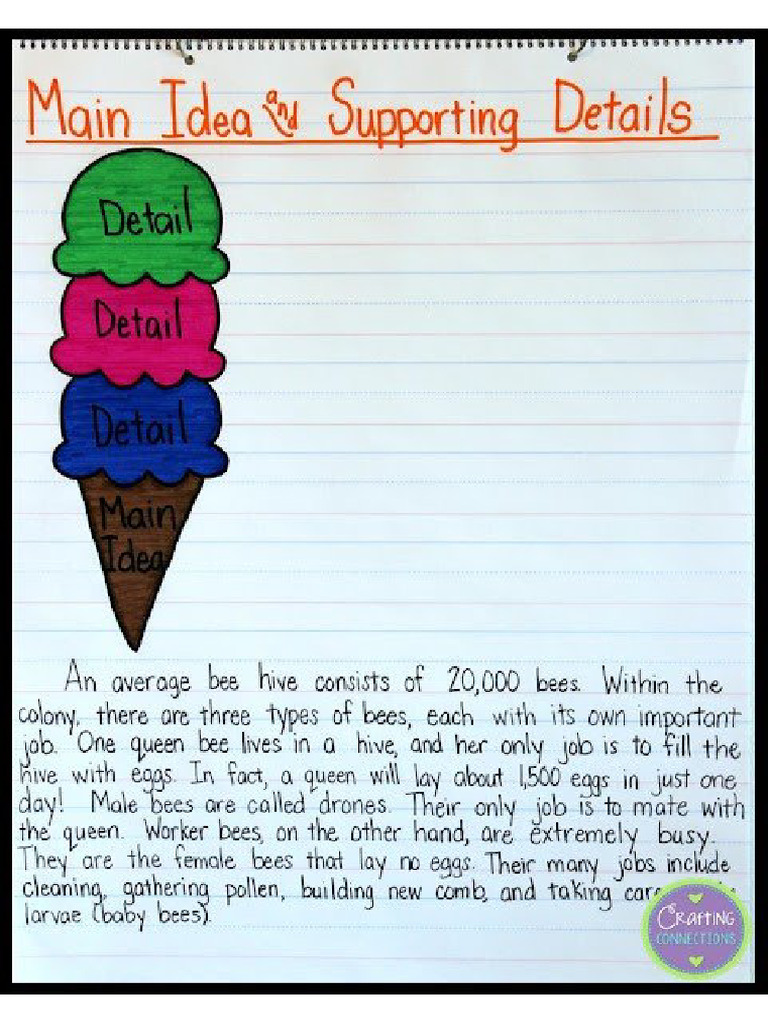 Main Idea and Supporting Details
Detail
Detail
Detail
Main
Idea
An average bee hive consists of 20,000 bees. Within the
colony, there are three types of bees, each with its own important
job. One queen bee lives in a hive, and her only job is to fill the
hive with eggs. In fact, a queen will lay about 1,500 eggs in just one
day! Male bees are called drones. Their only job is to mate with
the queen. Worker bees, on the other hand, are extremely busy.
They are the female bees that lay no eggs. Their many jobs include
cleaning, gathering pollen, building new comb, and taking care
larvae (baby bees).
CRAFTING
CONNECTIONS